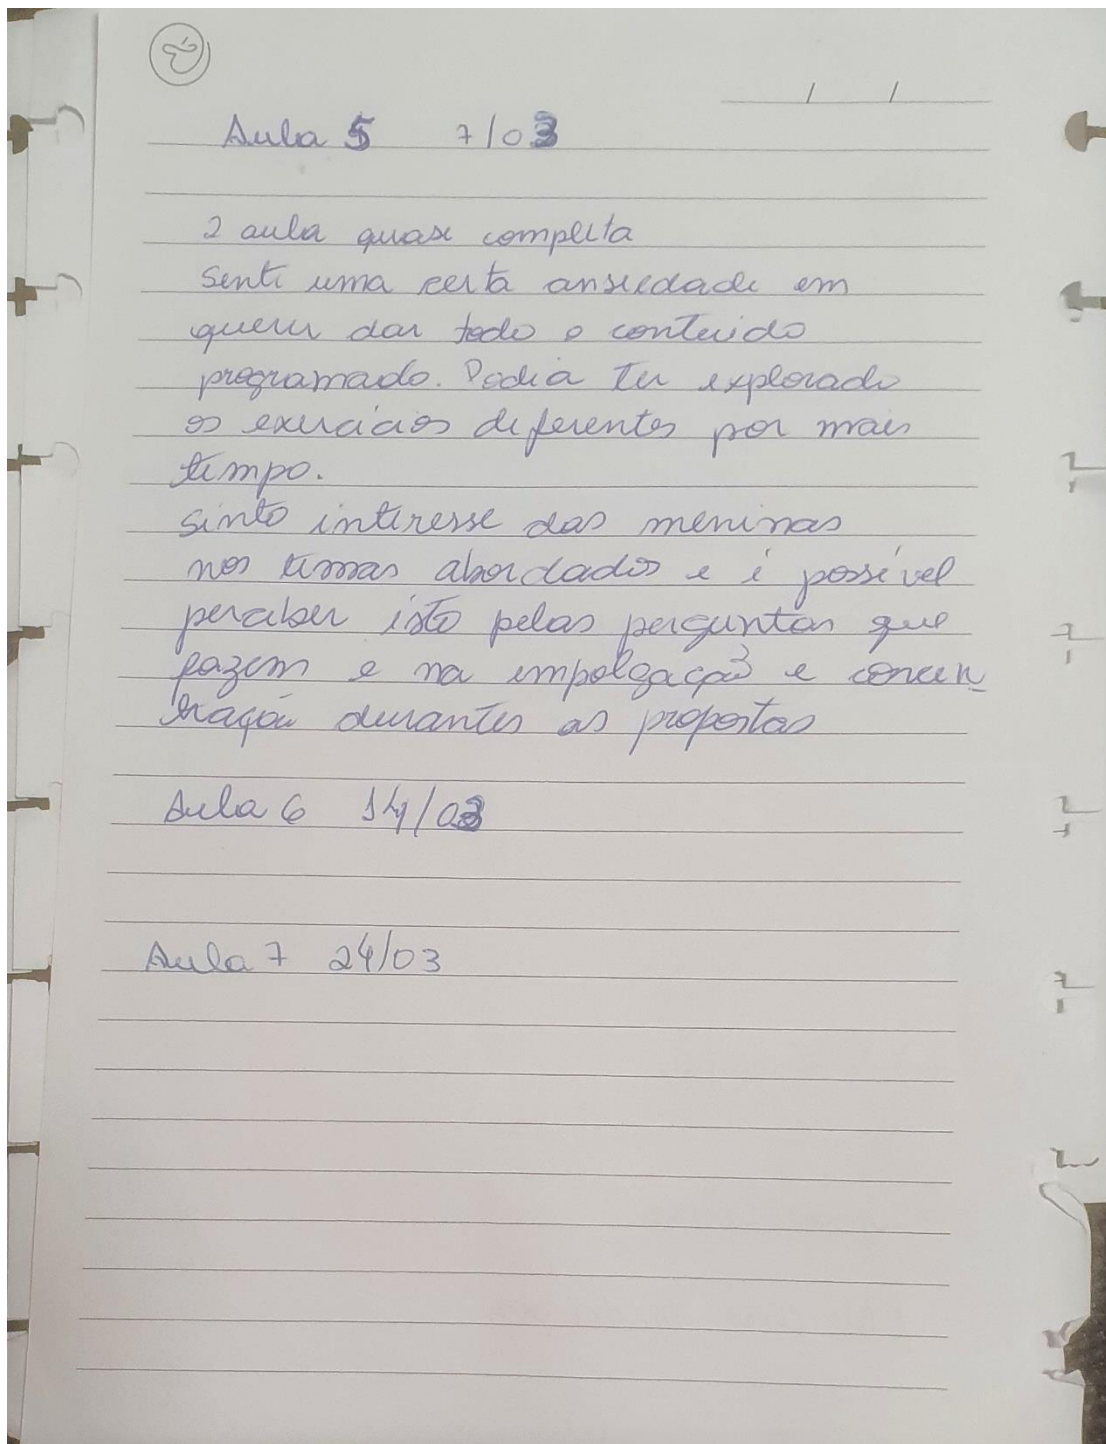 / /
Aula 5 7/03
2 aula quase completa
Senti uma certa ansiedade em
querer dar todo o conteúdo
programado. Podia ter explorado
os exercícios diferentes por mais
tempo.
Sinto interesse das meninas
nos temas abordados e é possível
perceber isto pelas perguntas que
fazem e na empolgação e concen
tração durantes as propostas
Aula 6 14/03
Aula 7 24/03